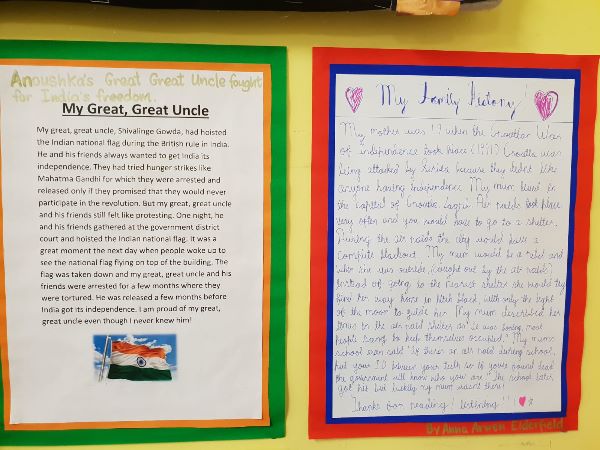 Anoushka's Great Great Uncle fought
for India's freedom.
My Great, Great Uncle
My great, great uncle, Shivalinge Gowda, had hoisted
the Indian national flag during the British rule in India.
He and his friends always wanted to get India its
independence. They had tried hunger strikes like
Mahatma Gandhi for which they were arrested and
released only if they promised that they would never
participate in the revolution. But my great, great uncle
and his friends still felt like protesting. One night, he
and his friends gathered at the government district
court and hoisted the Indian national flag. It was a
great moment the next day when people woke up to
see the national flag flying on top of the building. The
flag was taken down and my great, great uncle and his
friends were arrested for a few months where they
were tortured. He was released a few months before
India got its independence. I am proud of my great,
great uncle even though I never knew him!
My Family History!
My mother was 17 when the Croatian War
of independence took place (1991) Croatia was
being attacked by Serbia because they didn't like
anyone having independence. My mum lived in
the capital of Croatia, Zagreb. Air raids took place
very often and you would have to go to a shelter.
During the air raids the city would have a
complete blackout. My mum would be a rebel and
when she was outside, (caught out by the air raids)
instead of going to the nearest shelter she would try
find her way home in pitch black, with only the light
of the moon to guide her. My mum described her
times in the air raid shelter as "it was boring, most
people sang to keep themselves occupied." My mum's
school even said "If there's an air raid during school,
put your I.D between your teeth so if you're found dead
the government will know who you are." The school later
got hit but luckily my mum wasn't there!
Thanks for reading / listening!!
By Anna Arwen Elderfield